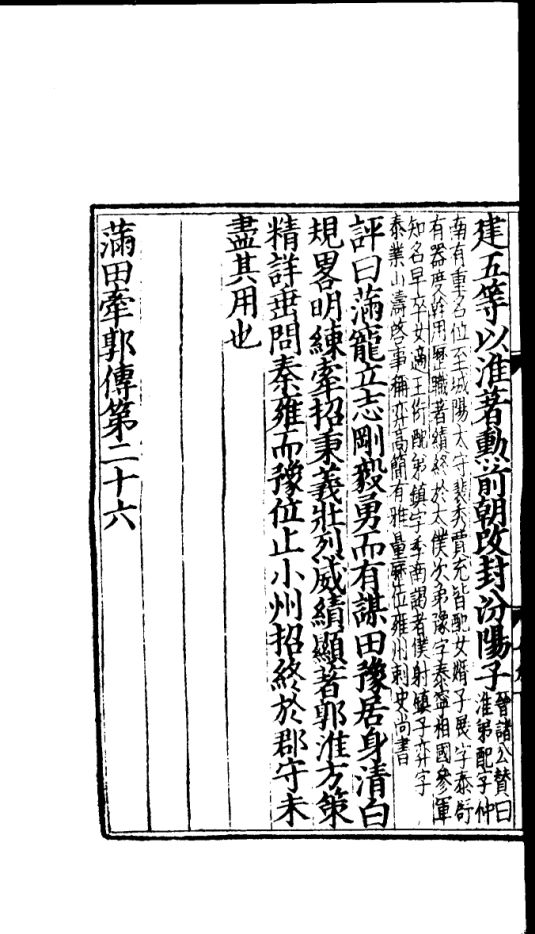 建五等以淮著勳前朝改封汾陽子晉諸公贊曰
淮弟配字仲
南有重名位至城陽太守裴秀賈充皆配女婿子展字泰舒
有器度幹用歷職著績終於太僕次弟豫字泰寧相國參軍
知名早卒女適王衍配弟鎮字季南謁者僕射鎮子弈字
泰業山濤啓事稱弈高簡有雅量歷位雍州刺史尚書
評曰滿寵立志剛毅勇而有謀田豫居身清白
規畧明練牽招秉義壯烈威績顯著郭淮方策
精詳垂問秦雍而豫位止小州招終於郡守未
盡其用也
滿田牽郭傳第二十六